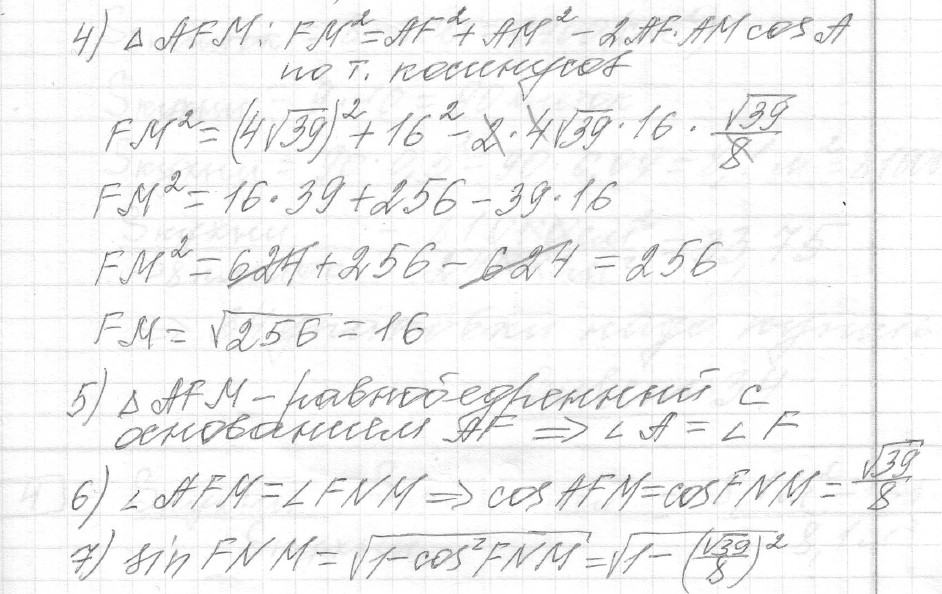 4) △ AFM: FM² = AF² + AM² - 2AF·AM cos A
по т. косинусов
FM² = (4√39)² + 16² - 2·4√39·16·√39/8
FM² = 16·39 + 256 - 39·16
FM² = 624 + 256 - 624 = 256
FM = √256 = 16
5) △ AFM - равнобедренный с
основанием AF ⇒ ∠A = ∠F
6) ∠AFM = ∠FNM ⇒ cos AFM = cos FNM = √39/8
7) sin FNM = √(1-cos²FNM) = √(1-(√39/8)²)